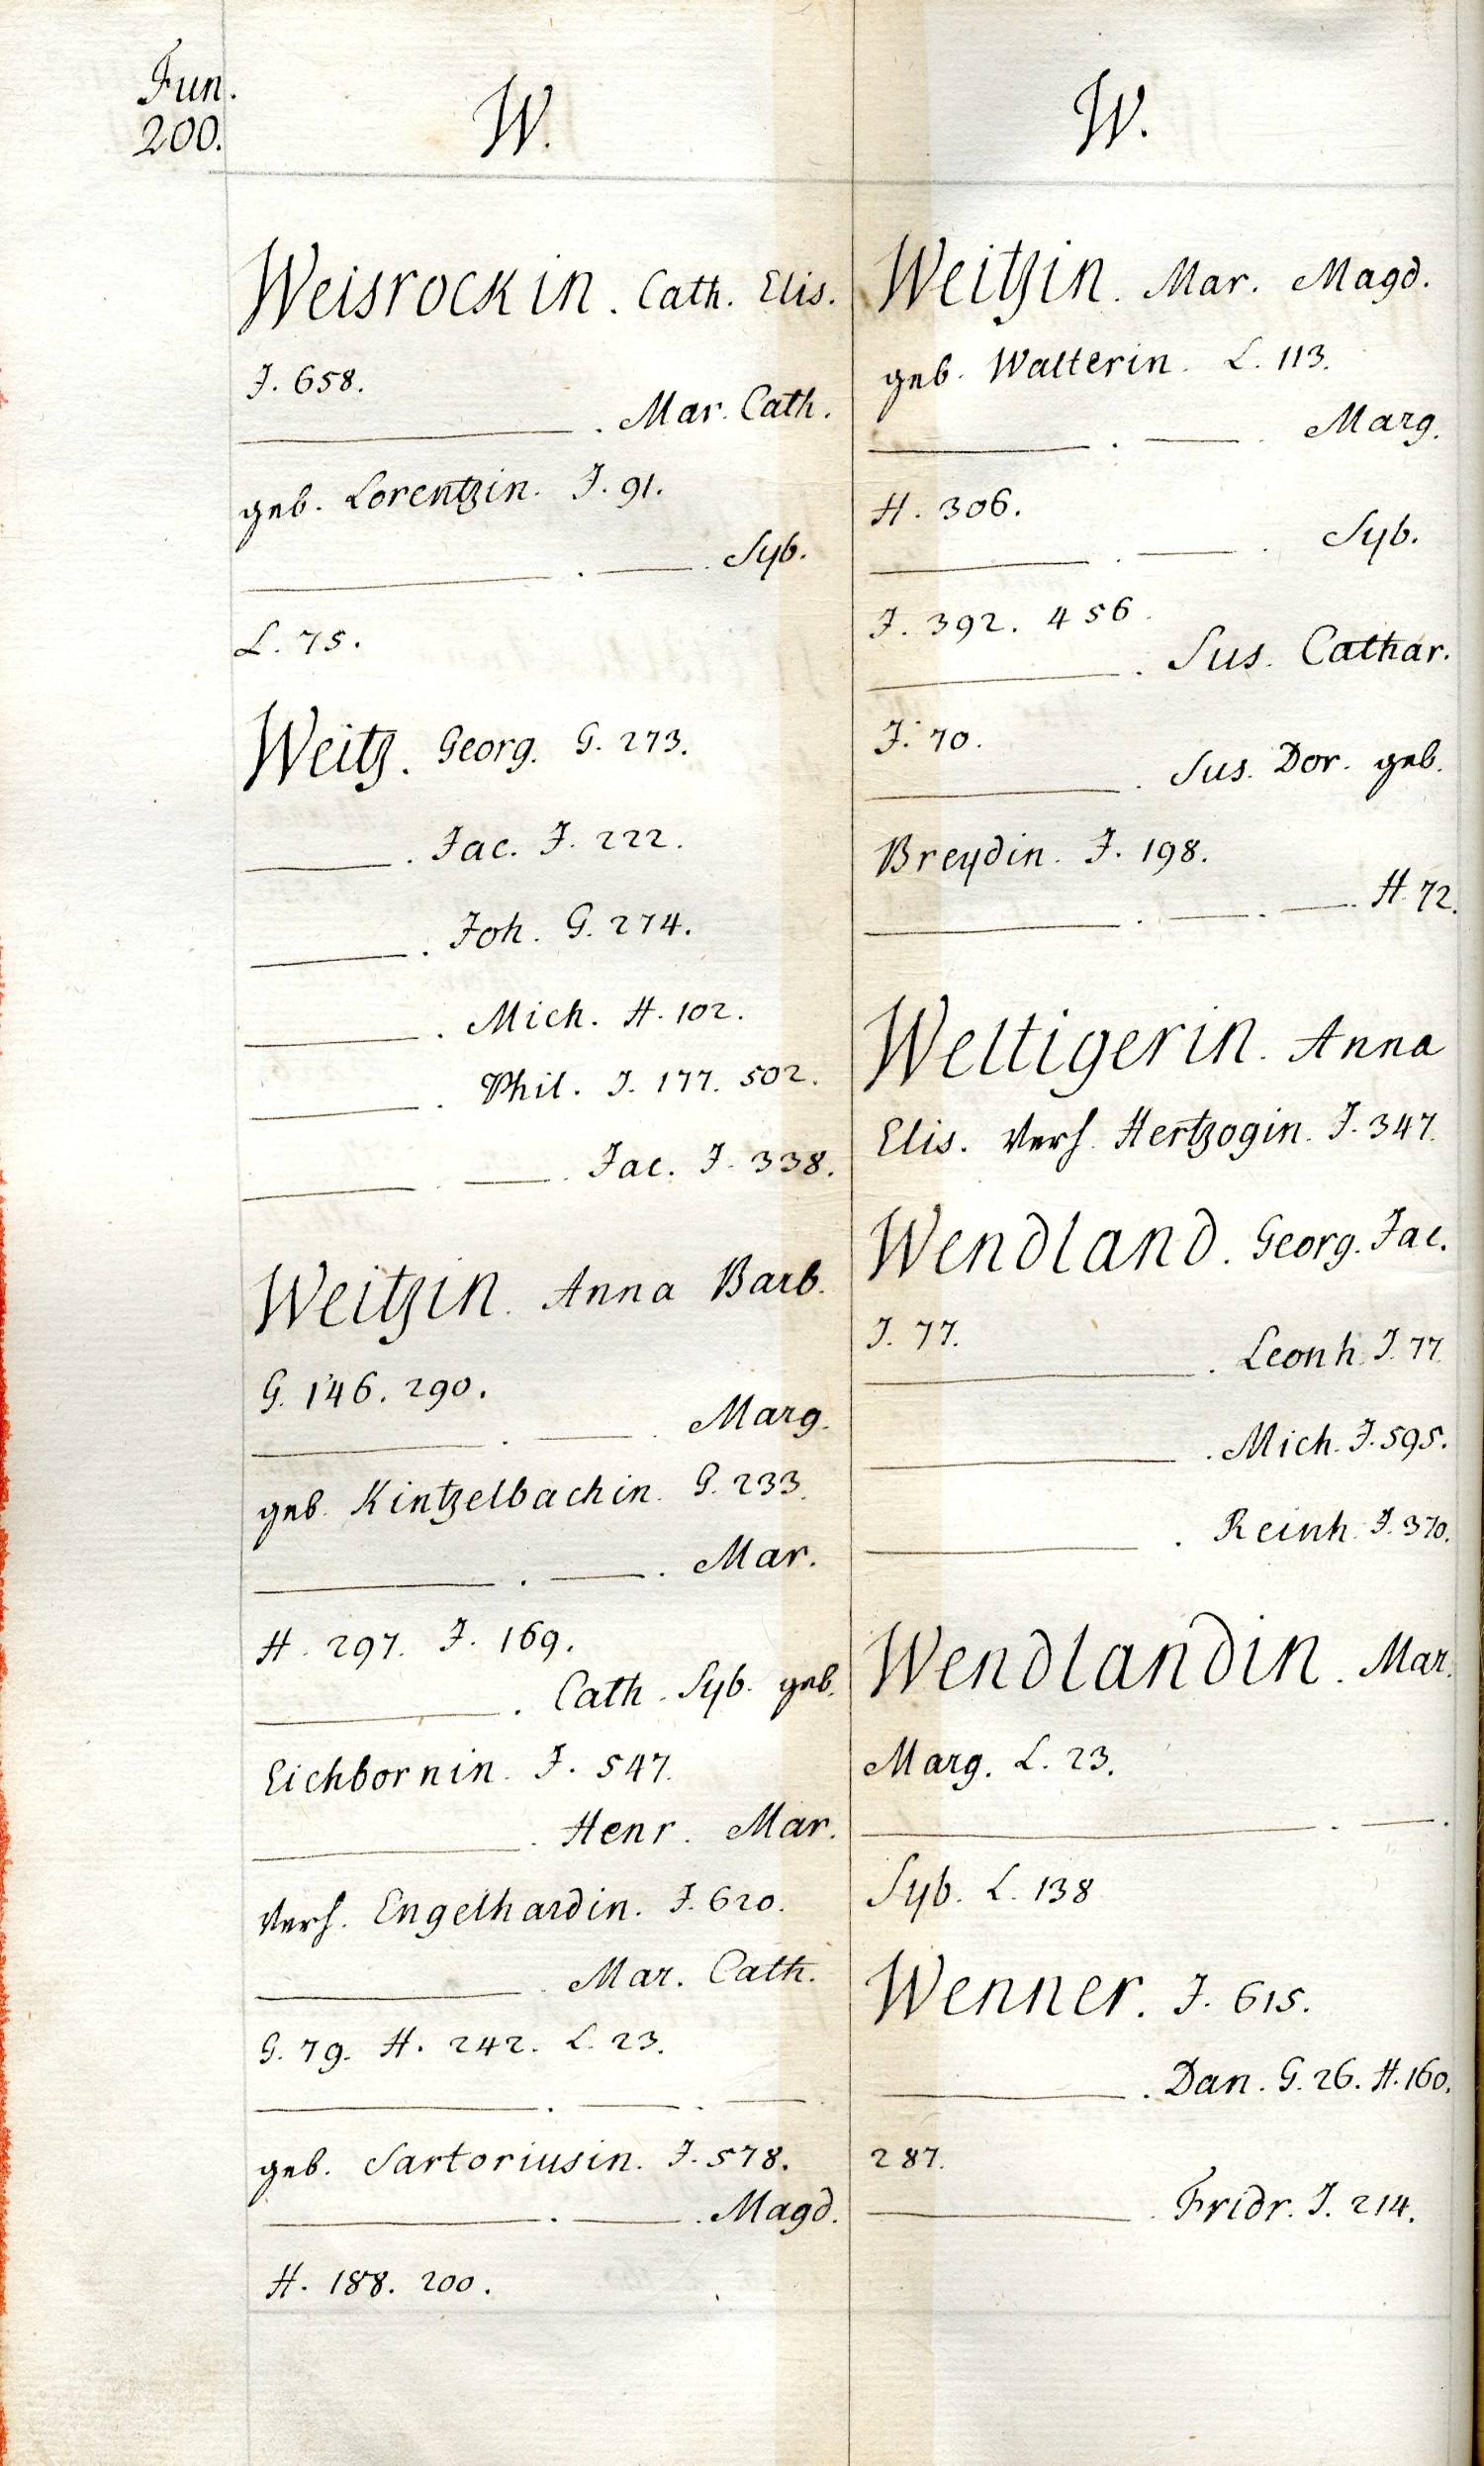 Fun.
200.
W.
Weisrockin. Cath. Elis.
J. 658.
———. Mar. Cath.
geb. Lorentzin. J. 91.
———. ———. Syb.
L. 75.
Weitz. Georg. G. 273.
———. Jac. J. 222.
———. Joh. G. 274.
———. Mich. H. 102.
———. Phil. J. 177. 502.
———. ———. Jac. J. 338.
Weitzin. Anna Barb.
G. 146. 290.
———. ———. Marg.
geb. Kintzelbachin. G. 233.
———. ———. Mar.
H. 297. J. 169.
———. Cath. Syb. geb.
Eichbornin. J. 547.
———. Henr. Mar.
Verh. Engelhardin. J. 620.
———. Mar. Cath.
G. 79. H. 242. L. 23.
———. ———. ———
geb. Sartoriusin. J. 578.
———. ———. Magd.
H. 188. 200.
W.
Weitzin. Mar. Magd.
geb. Walterin. L. 113.
———. ———. Marg.
H. 306.
———. ———. Syb.
J. 392. 456.
———. Sus. Cathar.
J. 70.
———. Sus. Dor. geb.
Breydin. J. 198.
———. ———. ———. H. 72.
Weltigerin. Anna
Elis. Verh. Hertzogin. J. 347.
Wendland. Georg. Jac.
J. 77.
———. Leonh. J. 77.
———. Mich. J. 595.
———. Reinh. J. 370.
Wendlandin. Mar.
Marg. L. 23.
———. ———.
Syb. L. 138
Wenner. J. 615.
———. Dan. G. 26. H. 160.
287.
———. Fridr. J. 214.